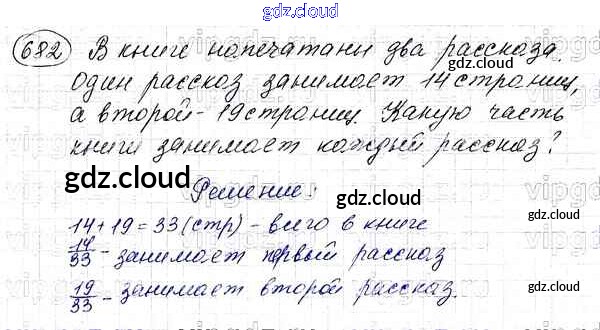 gdz.cloud
682 В книге напечатаны два рассказа.
Один рассказ занимает 14 страниц,
а второй - 19 страниц. Какую часть
книги занимает каждый рассказ?
gdz.cloud
gdz.cloud
gdz.cloud
gdz.cloud
Решение:
14+19=33 (стр) - всего в книге
14/33 - занимает первый рассказ
19/33 - занимает второй рассказ.
gdz.cloud
gdz.cloud
gdz.cloud
gdz.cloud